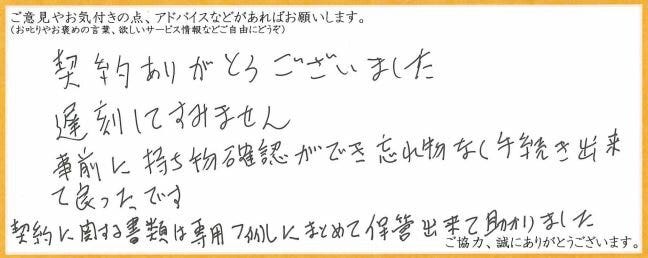 ご意見やお気付きの点、アドバイスなどがあればお願いします。
(お叱りやお褒めの言葉、欲しいサービス情報などご自由にどうぞ)
契約ありがとうございました
遅刻してすみません
事前に持ち物確認ができ忘れ物なく手続き出来
て良ったです
契約に関する書類は専用ファイルにまとめて保管出来て助かりました
ご協力、誠にありがとうございます。